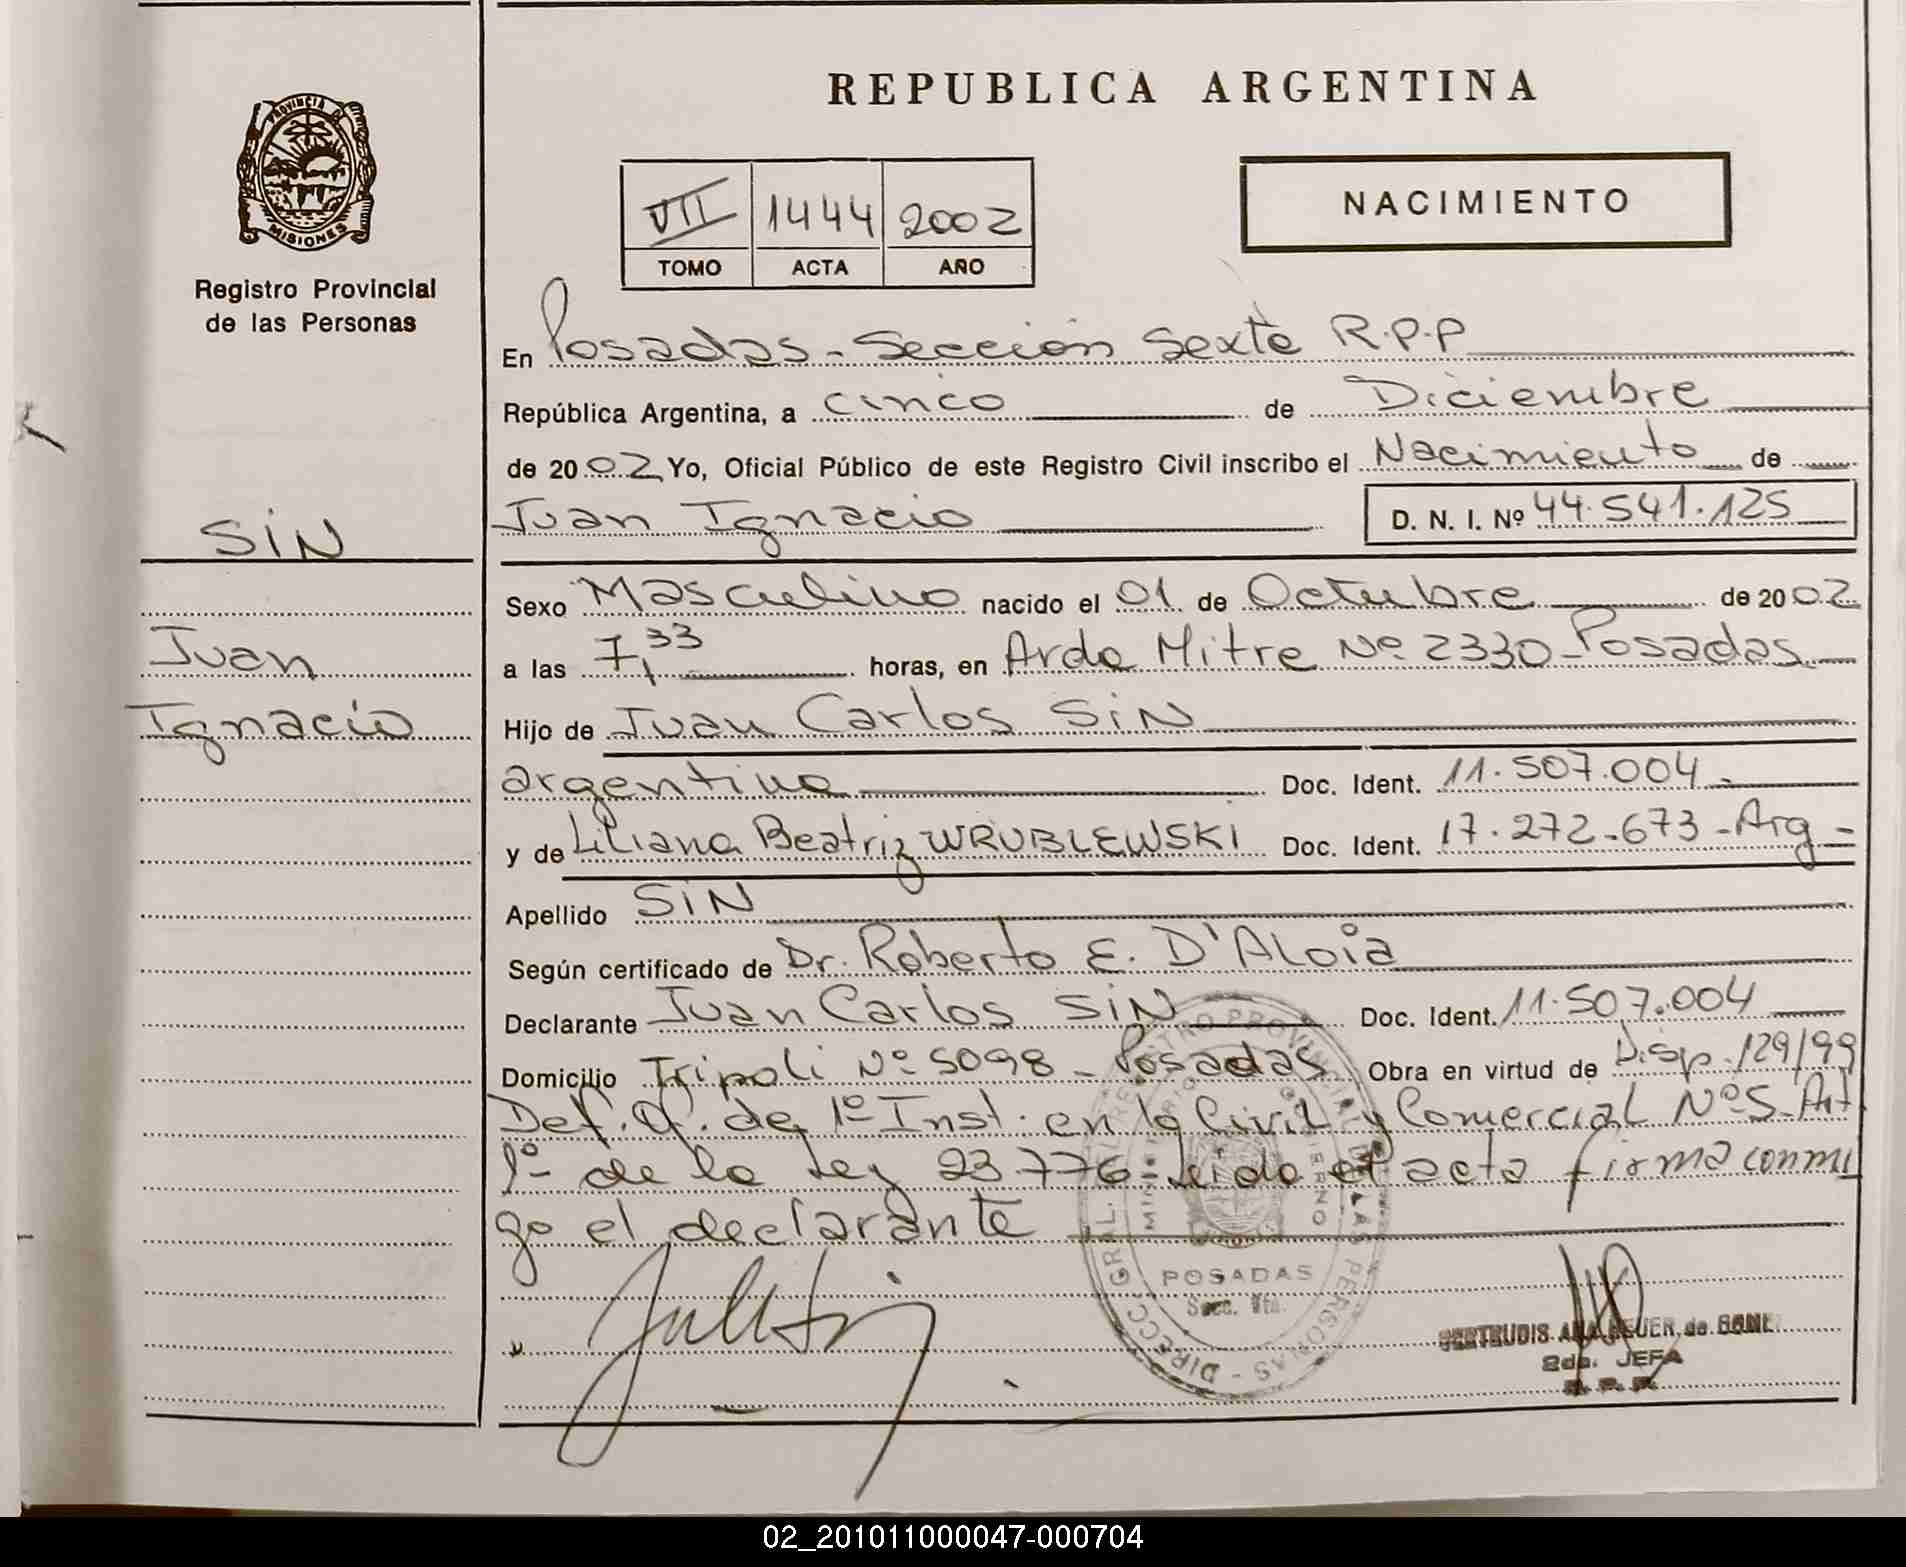 REPUBLICA ARGENTINA
PROVINCIA DE
MISIONES
Registro Provincial
de las Personas
VII 1444 2002
TOMO ACTA AÑO
NACIMIENTO
En Posadas - Sección Sexta R.P.P
República Argentina, a cinco de Diciembre
de 2002 Yo, Oficial Público de este Registro Civil inscribo el Nacimiento de
Juan Ignacio D. N. I. Nº 44.541.125
SiN
Juan
Ignacio
Sexo Masculino nacido el 01 de Octubre de 2002
a las 7,33 horas, en Avda Mitre Nº 2330 Posadas
Hijo de Juan Carlos SiN
argentino Doc. Ident. 11.507.004
y de Liliana Beatriz WRUBLEWSKI Doc. Ident. 17.272.673 - Arg -
Apellido SiN
Según certificado de Dr. Roberto E. D'Aloia
Declarante Juan Carlos SiN Doc. Ident. 11.507.004
Domicilio Tripoli Nº 5098 - Posadas Obra en virtud de Disp. 129/99
Def. Of. de 1º Inst. en lo Civil y Comercial Nº 5. Art
1º de la Ley 23776 leida el acta firma conmi
go el declarante
DIRECC. GRAL. REGISTRO PROVINCIAL DE LAS PERSONAS
POSADAS
Secc. 6ta.
GERTRUDIS ANA de
2da. JEFA
R.P.P.
02_201011000047-000704